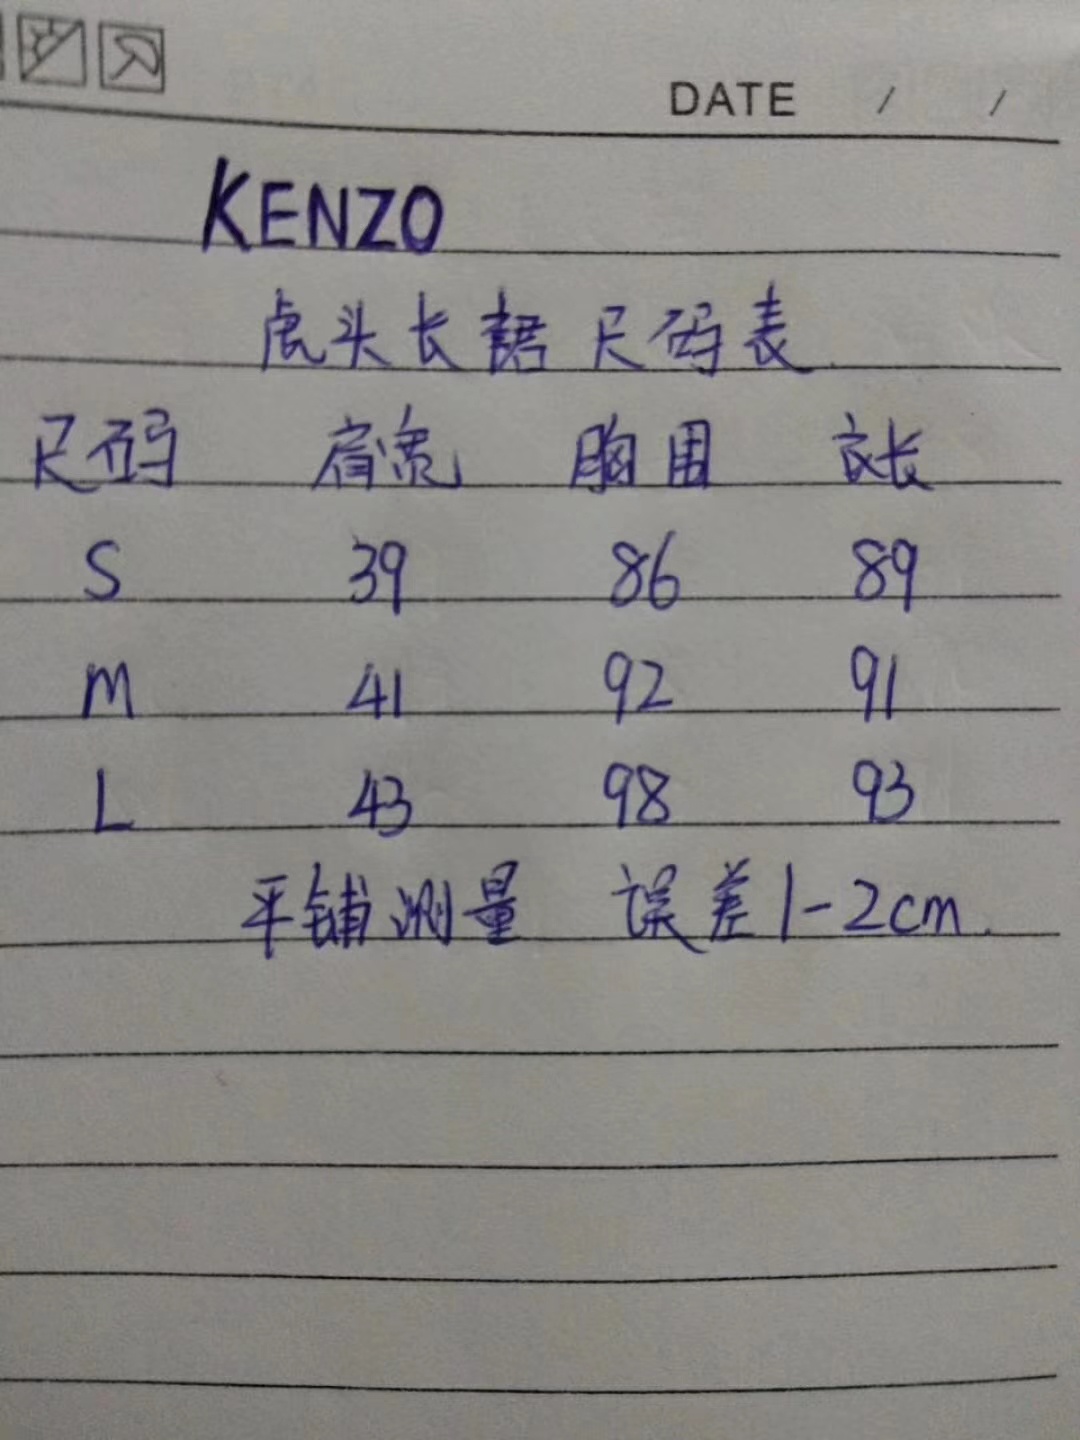 DATE / /
KENZO
虎头长裙 尺码表
尺码 肩宽 胸围 衣长
S 39 86 89
M 41 92 91
L 43 98 93
平铺测量 误差1-2cm.